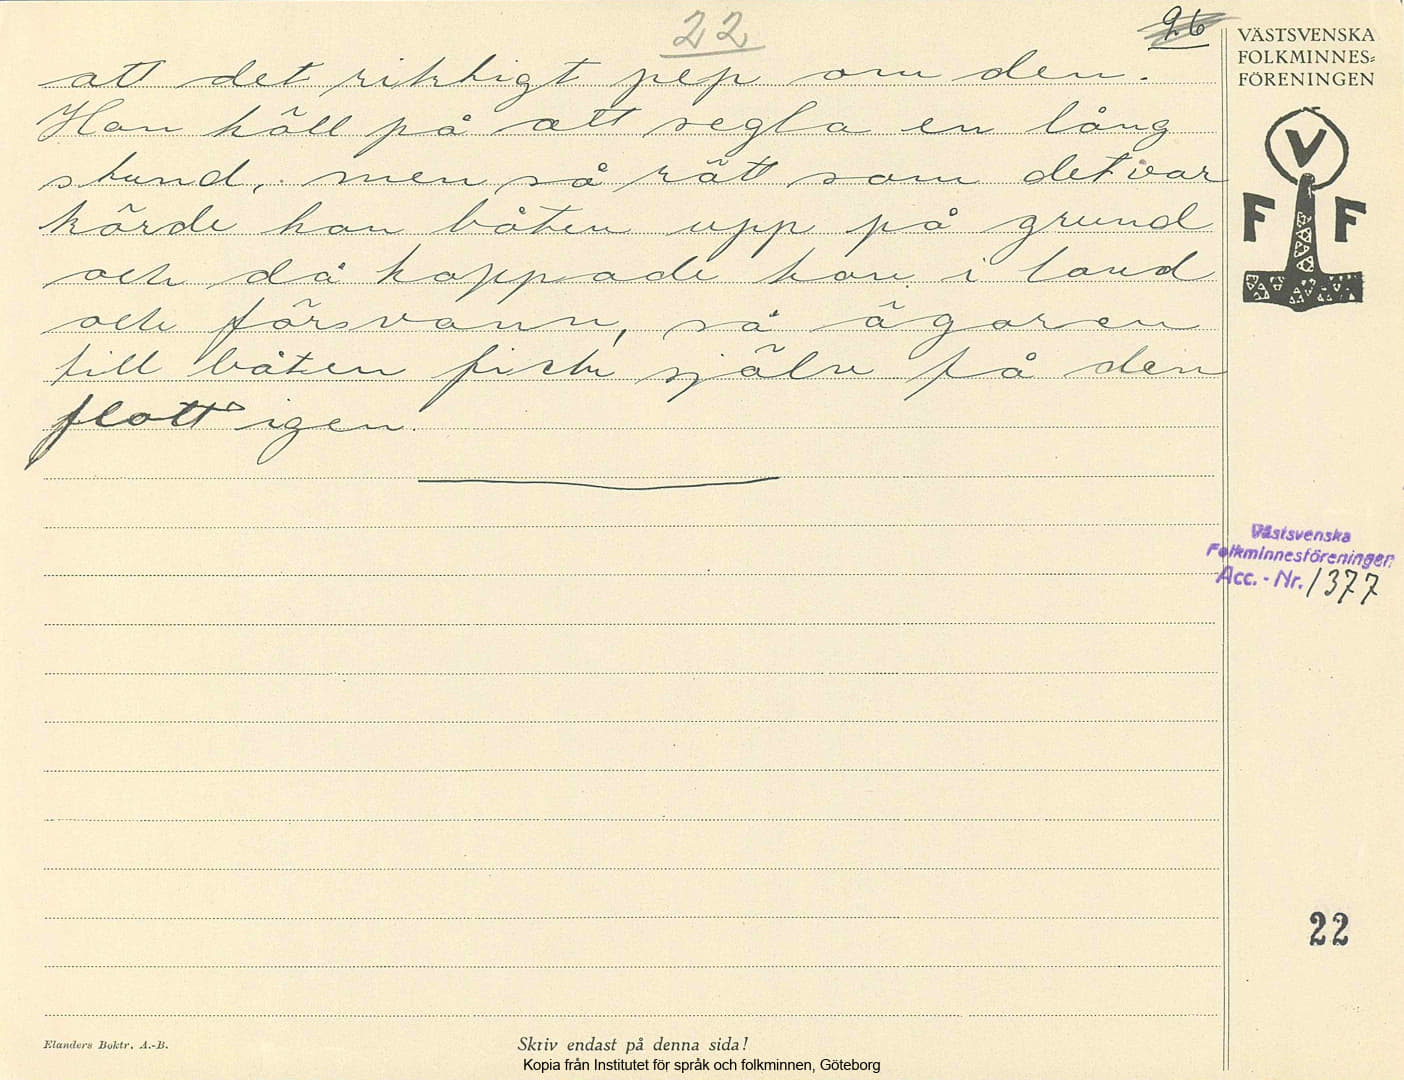 22
26
VÄSTSVENSKA
FOLKMINNES=
FÖRENINGEN
V
F F
att det riktigt pep om den.
Han höll på att segla en lång
stund, men så rätt som det var
körde han båten upp på grund
och då hoppade han i land
och försvann, så ägaren
till båten fick själv få den
flott igen.
Västsvenska
Folkminnesföreningen
Acc. - Nr. 1377
22
Elanders Boktr. A.-B.
Skriv endast på denna sida!
Kopia från Institutet för språk och folkminnen, Göteborg